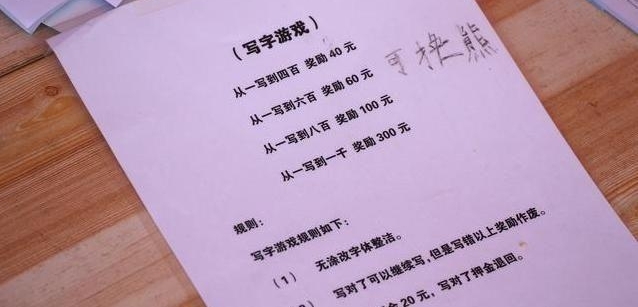 （写字游戏）
可换熊
从一写到四百 奖励 40 元
从一写到六百 奖励 60 元
从一写到八百 奖励 100 元
从一写到一千 奖励 300 元
规则：
写字游戏规则如下：
（1） 无涂改字体整洁。
写对了可以继续写，但是写错以上奖励作废。
20 元，写对了押金退回。